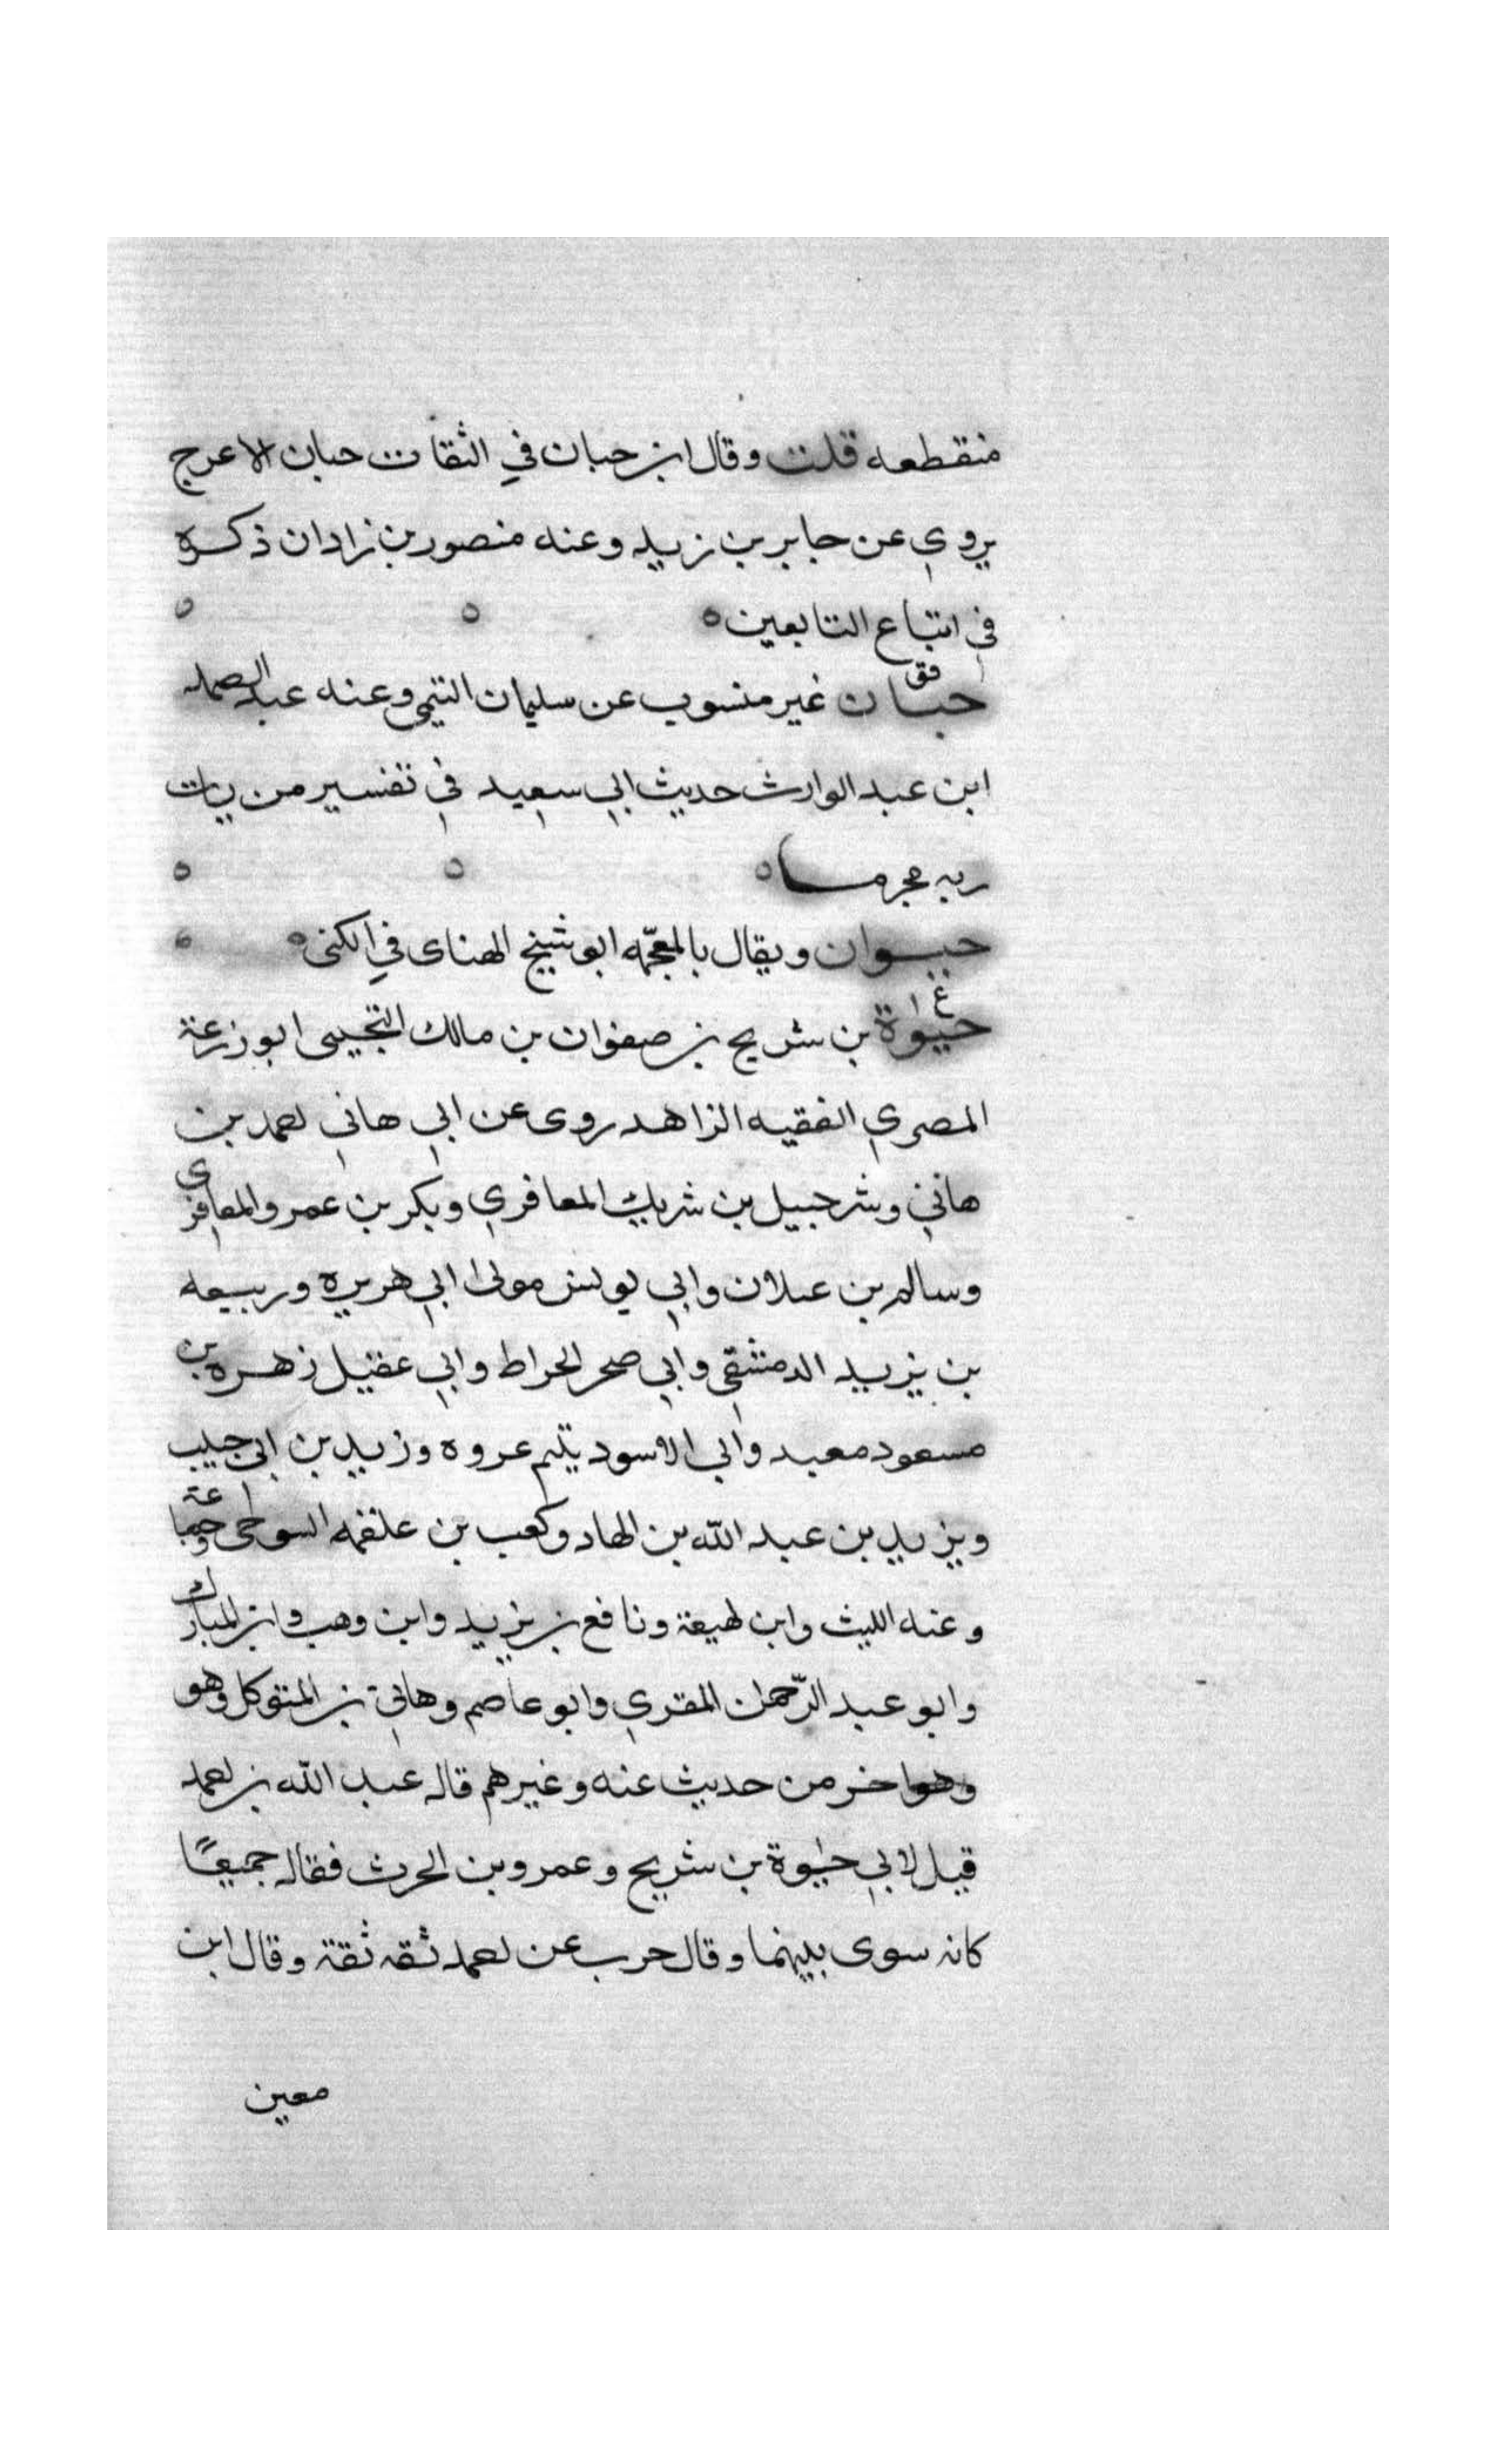 منقطعه قلت وقال ابن حبان في الثقات حبان الاعرج
يروي عن جابر بن زيد وعنه منصور بن زادان ذكره
في اتباع التابعين ه ه ه
فق
حبان غير منسوب عن سليمان التيمي وعنه عبد الصمد
ابن عبد الوارث حديث ابي سعيد في تفسير من يات
ربه مجرما ه ه ه
حيوان ويقال بالمعجمه ابو شيخ الهناى في الكنى ه ه
ع
حيوة بن شريح بن صفوان بن مالك التجيبى ابو زرعة
المصري الفقيه الزاهد روى عن ابي هاني حميد بن
هاني وشرحبيل بن شريك المعافري وبكر بن عمرو المعافري
وسالم بن عيلان وابي يونس مولى ابي هريره وربيعه
بن يزيد الدمشقي وابي صخر الخراط وابي عقيل زهره بن
مسعود معبد وابي الاسود يتيم عروه وزيد بن ابي حبيب
ويزيد بن عبد الله بن الهاد وكعب بن علقمه وجماعة
وعنه الليث وابن لهيعة ونافع بن يزيد وابن وهب وابن المبارك
وابو عبد الرحمن المقري وابو عاصم وهاني بن المتوكل وهو
وهو اخر من حديث عنه وغيرهم قال عبد الله بن احمد
قيل لابي حيوة بن شريح وعمرو بن الحرث فقال جميعًا
كانه سوى بينهما وقال حرب عن احمد ثقه ثقة وقال ابن
معين